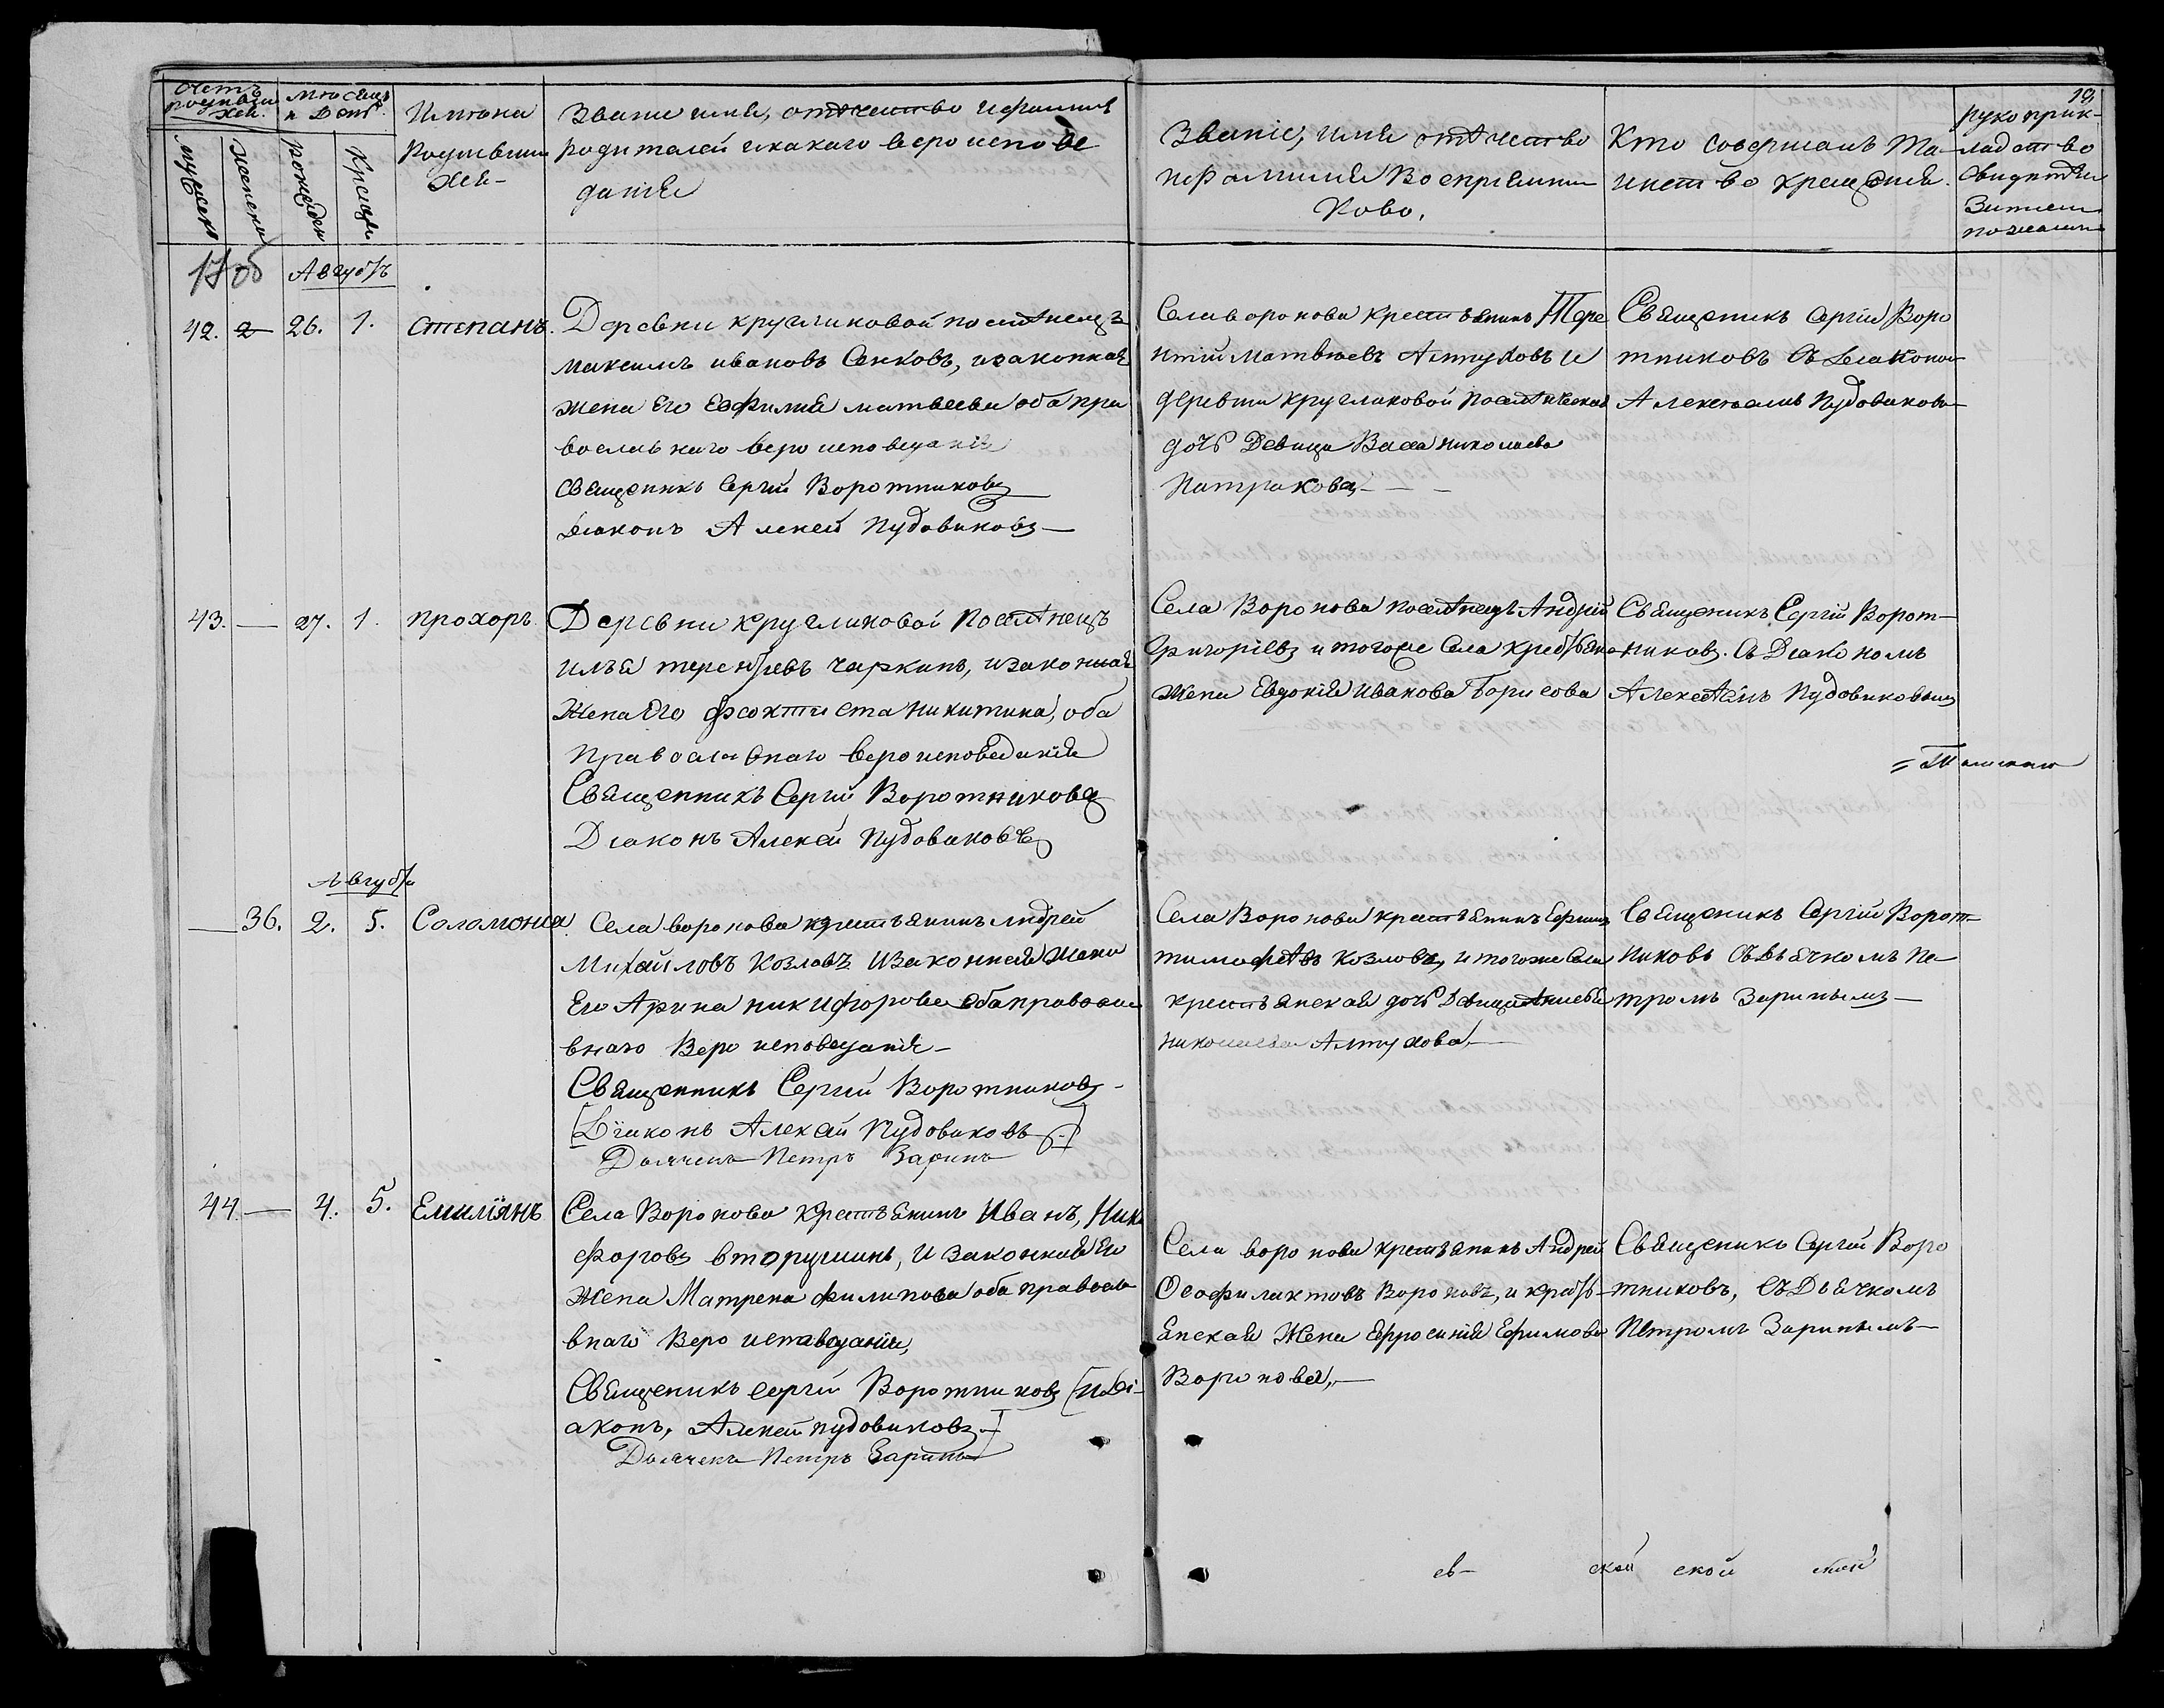 Счетъ родившихся.
Мѣсяцъ и День
Имѣна Родившихся
Звание имя, отѣчество и фамилия родителей и какаго вероисповедания
Званіе, имя отѣчество и фамилия Восприемникова.
Кто совершалъ Таинство крещения.
рукоприкладство свидѣтелей записи по желанию
Мужеска
Женска
рожеден
Крещен
Августъ
42. 26. 1. Степанъ.
Деревни кругликовой поселѣнецъ
максимъ ивановъ Сенковъ, изаконная
жена Его Еофимия матвеева оба пра
вославнаго вероисповедания
Священикъ Сергий Воротниковъ
Диаконъ Алексей Пудовиковъ
Села воронова крестьянинъ Тере
нтий матвѣевъ Алтуховъ и
деревни кругликовой поселѣнческая
дочь Девица Васа николаева
Патракова,
Священикъ Сергий Воро
тниковъ Съ Диакономъ
Алексѣемъ Пудовиковы
43. — 27. 1. прохоръ
Деревни кругликовой поселѣнецъ
илья терентьевъ чаркинъ, изаконная
Жена Его феоктиста никитина, оба
Православнаго вероисповедания
Священникъ Сергий Воротниковъ
Диаконъ Алексей Пудовиковъ
Села Воронова поселѣнецъ Андрій
Григоріевъ и тогоже Села крестьянка
жена Евдокия иванова Борисова
Священикъ Сергій Ворот-
никовъ. Съ Диакономъ
Алексѣемъ Пудовиковымъ
Августа
— 36. 2. 5. Соломония
Села воронова крестьянинъ Андрей
Михайловъ Козловъ изаконная жена
Его Арина никифорова оба правосла
внаго Вероисповедания
Священникъ Сергий Воротниковъ
[Дїаконъ Алексей Пудовиковъ]
Дьячекъ Петръ Заринъ
Села Воронова крестьянинъ Ефимъ
тимофѣевъ козловъ, и тогоже Села
крестьянская дочь Девица Анисья
николаева Алтухова,
Священикъ Сергій Ворот-
никовъ Съ дьячкомъ Пе
тромъ Заринымъ
44 — 4. 5. Емилїянъ
Села Воронова крестьянинъ Иванъ, Ники
форовъ вторушинъ, и законная Его
жена Матрена филипова оба правосла
внаго Вероисповедания,
Священикъ Сергий Воротниковъ [и Ді-
аконъ, Алексей пудовиковъ]
Дьячекъ Петръ Заринъ
Села воронова крестьянинъ Андрей
Феофилактовъ Вороновъ, и кресть-
янская жена Ефросиния Ефимова
Воронова,
Священикъ Сергий Воро
тниковъ, Съ Дьячкомъ
Петромъ Заринымъ
ев-
ской
ской